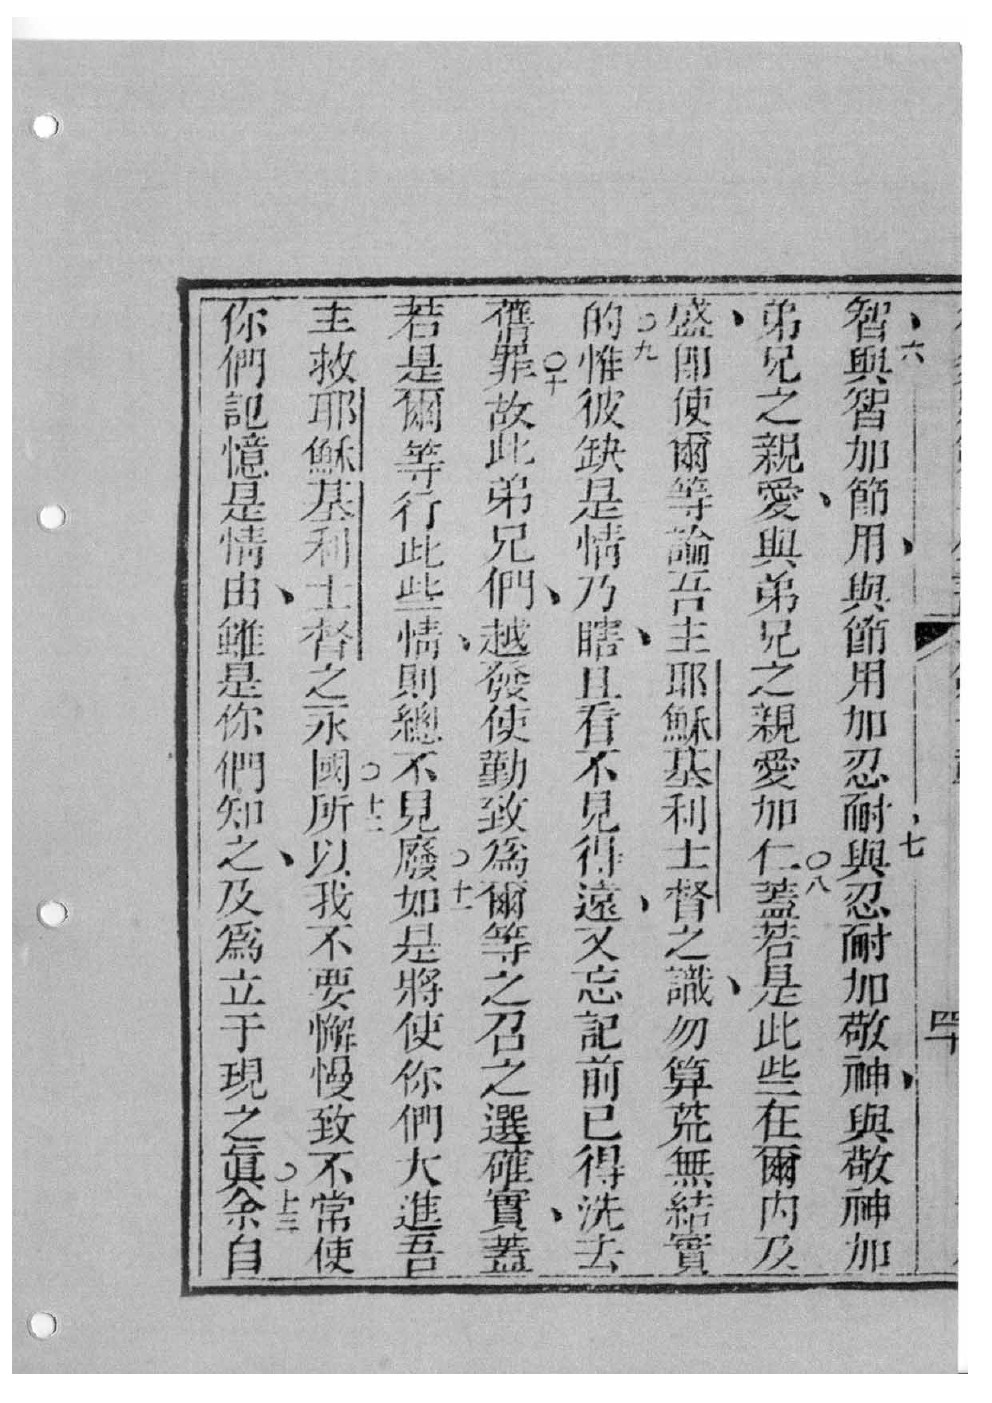 智與智加節用與節用加忍耐與忍耐加敬神與敬神加
弟兄之親愛與弟兄之親愛加仁蓋若是此些在爾內及
盛卽使爾等論吾主耶穌基利士督之識勿算荒無結實
的惟彼缺是情乃瞎且看不見得遠又忘記前已得洗去
舊罪故此弟兄們越發使勤致爲爾等之召之選確實蓋
若是爾等行此些情則總不見廢如是將使你們大進吾
主救耶穌基利士督之永國所以我不要懈慢致不常使
你們記憶是情由雖是你們知之及爲立于現之眞余自
六
七
八
九
十
十一
十二
十三
四十